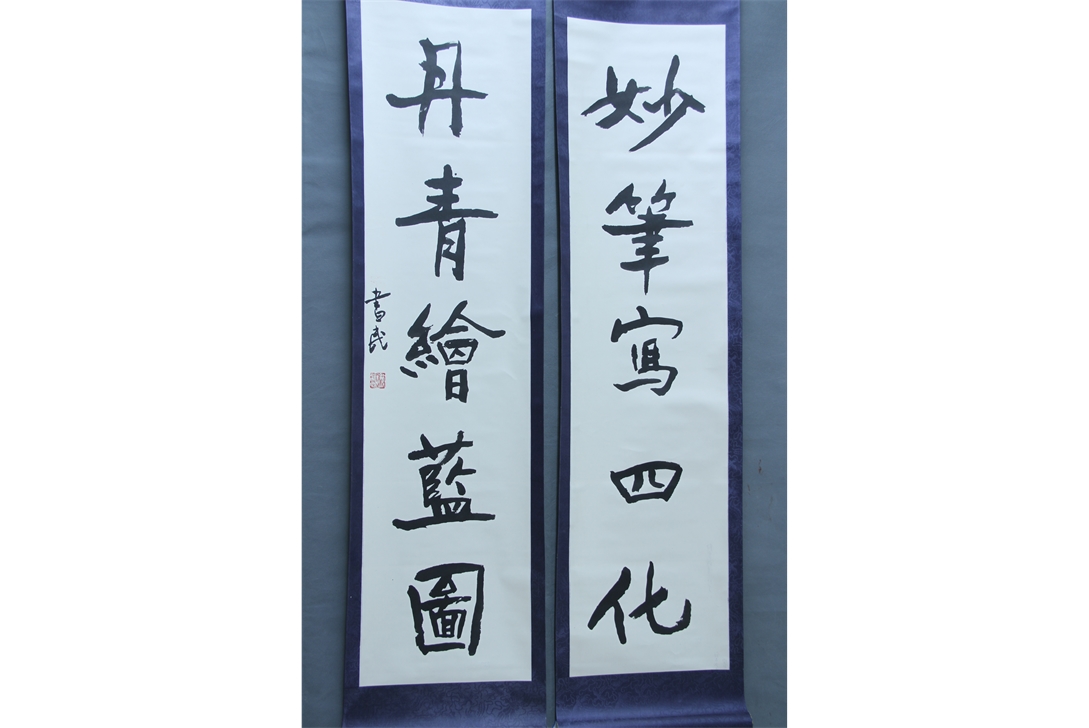 妙筆寫四化
丹青繪藍圖
書民